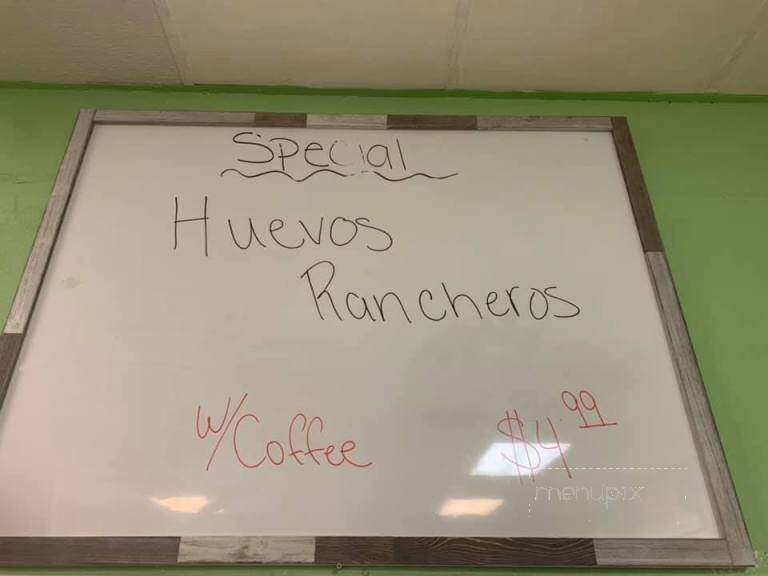 Special
Huevos
Rancheros
w/Coffee $4.99
menupix